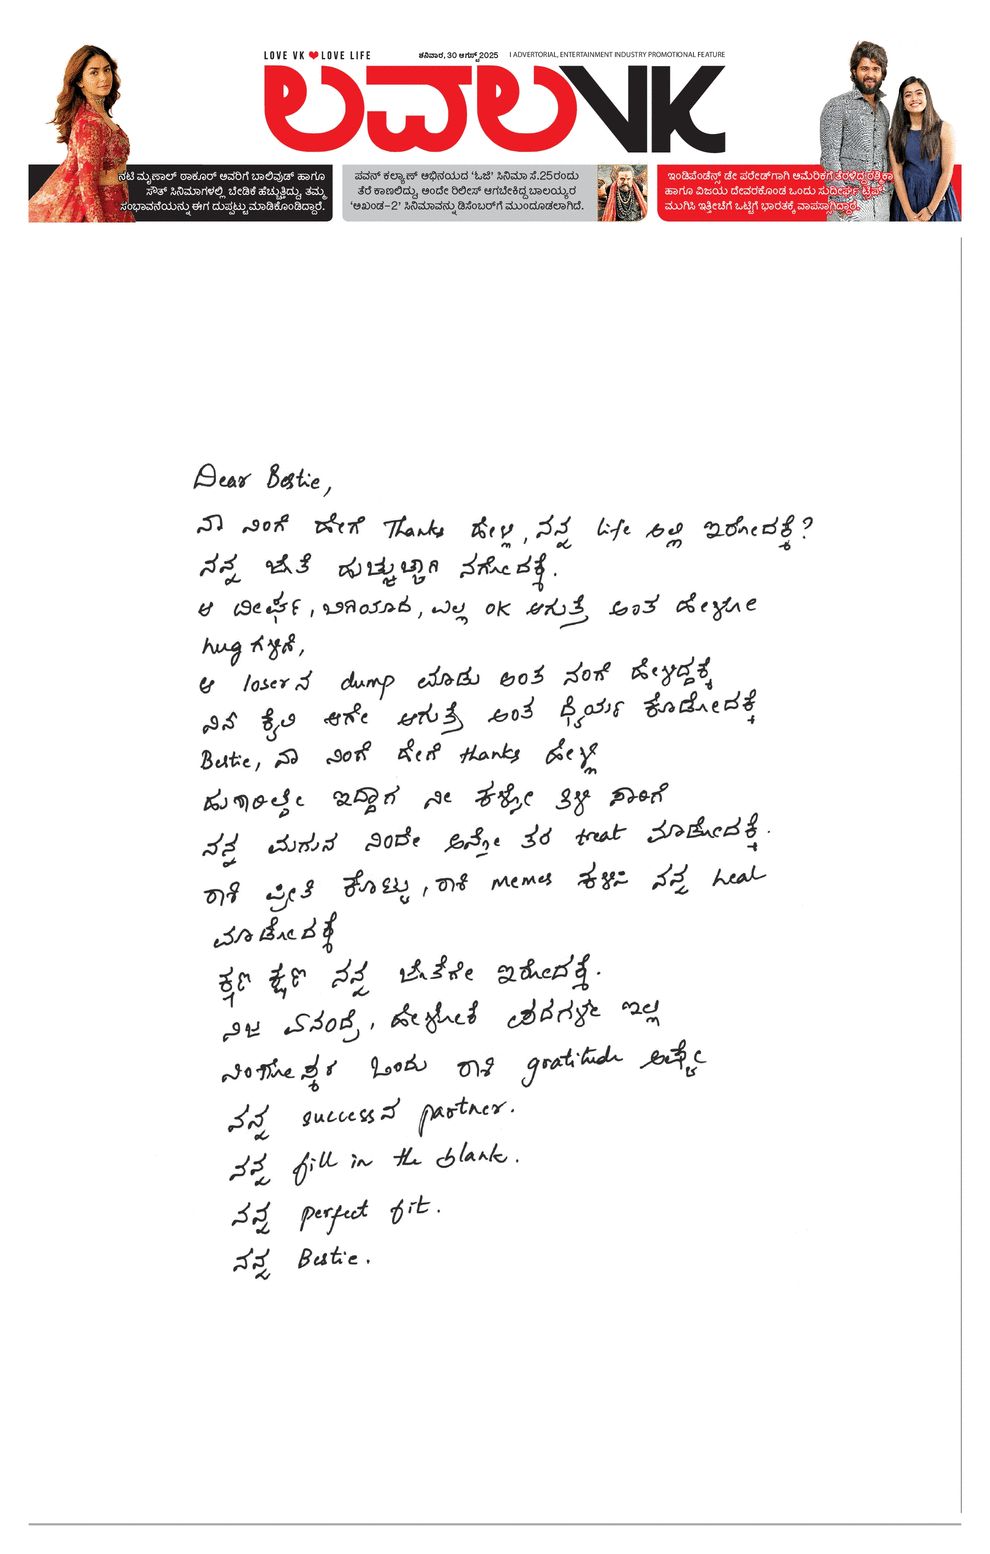 LOVE VK ❤ LOVE LIFE
ಶನಿವಾರ, 30 ಆಗಸ್ಟ್ 2025 | ADVERTORIAL, ENTERTAINMENT INDUSTRY PROMOTIONAL FEATURE
ಲವಲVK
ನಟಿ ಮೃಣಾಲ್ ಠಾಕೂರ್ ಅವರಿಗೆ ಬಾಲಿವುಡ್ ಹಾಗೂ
ಸೌತ್ ಸಿನಿಮಾಗಳಲ್ಲಿ ಬೇಡಿಕೆ ಹೆಚ್ಚುತ್ತಿದ್ದು, ತಮ್ಮ
ಸಂಭಾವನೆಯನ್ನು ಈಗ ದುಪ್ಪಟ್ಟು ಮಾಡಿಕೊಂಡಿದ್ದಾರೆ.
ಪವನ್ ಕಲ್ಯಾಣ್ ಅಭಿನಯದ ‘ಓಜಿ’ ಸಿನಿಮಾ ಸೆ.25ರಂದು
ತೆರೆ ಕಾಣಲಿದ್ದು, ಅಂದೇ ರಿಲೀಸ್ ಆಗಬೇಕಿದ್ದ ಬಾಲಯ್ಯರ
‘ಅಖಂಡ–2’ ಸಿನಿಮಾವನ್ನು ಡಿಸೆಂಬರ್‌ಗೆ ಮುಂದೂಡಲಾಗಿದೆ.
ಇಂಡಿಪೆಂಡೆನ್ಸ್ ಡೇ ಪರೇಡ್‌ಗಾಗಿ ಅಮೆರಿಕಗೆ ತೆರಳಿದ್ದ ರಶ್ಮಿಕಾ
ಹಾಗೂ ವಿಜಯ ದೇವರಕೊಂಡ ಒಂದು ಸುದೀರ್ಘ ಟ್ರಿಪ್
ಮುಗಿಸಿ ಇತ್ತೀಚೆಗೆ ಒಟ್ಟಿಗೆ ಭಾರತಕ್ಕೆ ವಾಪಸ್ಸಾಗಿದ್ದಾರೆ.
Dear Bestie,
ನಾ ನಿಂಗೆ ಹೇಗೆ Thanks ಹೇಳ್ಲಿ, ನನ್ನ life ಅಲ್ಲಿ ಇರೋದಕ್ಕೆ?
ನನ್ನ ಜೊತೆ ಹುಚ್ಚುಚ್ಚಾಗಿ ನಗೋದಕ್ಕೆ.
ಆ ದೀರ್ಘ, ಬಿಗಿಯಾದ, ಎಲ್ಲ OK ಆಗುತ್ತೆ ಅಂತ ಹೇಳೋ
hug ಗಳಿಗೆ,
ಆ loserನ dump ಮಾಡು ಅಂತ ನಂಗೆ ಹೇಳಿದ್ದಕ್ಕೆ
ನಿನ್ ಕೈಲಿ ಆಗೇ ಆಗುತ್ತೆ ಅಂತ ಧೈರ್ಯ ಕೊಡೋದಕ್ಕೆ
Bestie, ನಾ ನಿಂಗೆ ಹೇಗೆ thanks ಹೇಳ್ಲಿ
ಹುಷಾರಿಲ್ದೇ ಇದ್ದಾಗ ನೀ ಕಳ್ಸೋ ತಿಳಿ ಸಾರಿಗೆ
ನನ್ನ ಮಗುನ ನಿಂದೇ ಅನ್ನೋ ತರ treat ಮಾಡೋದಕ್ಕೆ.
ರಾಶಿ ಪ್ರೀತಿ ಕೊಟ್ಟು, ರಾಶಿ memes ಕಳಿಸಿ ನನ್ನ heal
ಮಾಡೋದಕ್ಕೆ
ಕ್ಷಣ ಕ್ಷಣ ನನ್ನ ಜೊತೆಗೇ ಇರೋದಕ್ಕೆ.
ನಿಜ ಏನಂದ್ರೆ, ಹೇಳೋಕೆ ಪದಗಳೇ ಇಲ್ಲ
ನಿಂಗೋಸ್ಕರ ಒಂದು ರಾಶಿ gratitude ಅಷ್ಟೇ
ನನ್ನ successನ partner.
ನನ್ನ fill in the blank.
ನನ್ನ perfect fit.
ನನ್ನ Bestie.